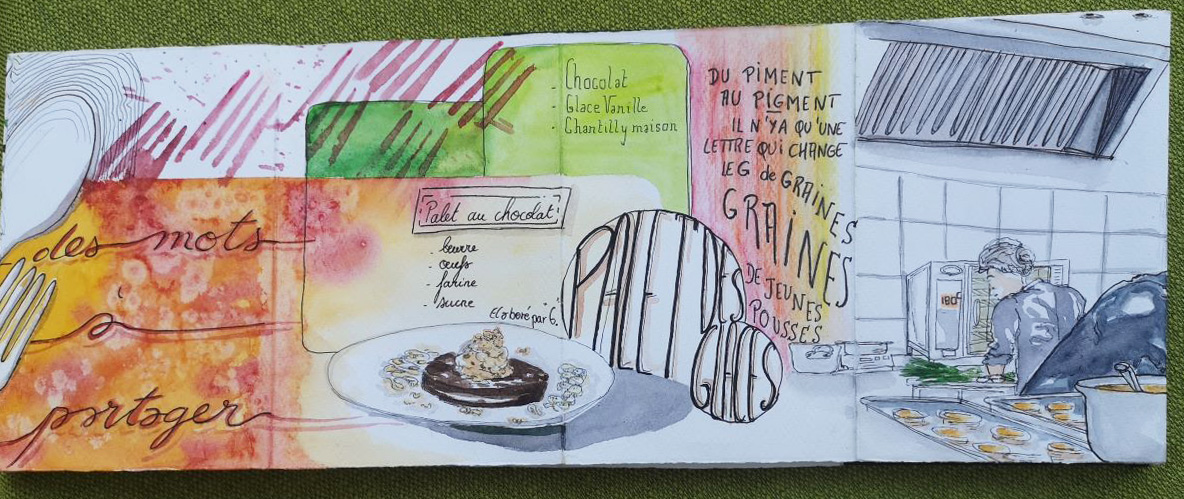 des mots
à
partager
- Chocolat
- Glace Vanille
- Chantilly maison
Palet au chocolat
- beurre
- œufs
- farine
- sucre
Elaboré par G.
DU PIMENT
AU PIGMENT
IL N'YA QU'UNE
LETTRE QUI CHANGE
LE G de GRAINES
GRAINES
DE JEUNES
POUSSES
180°